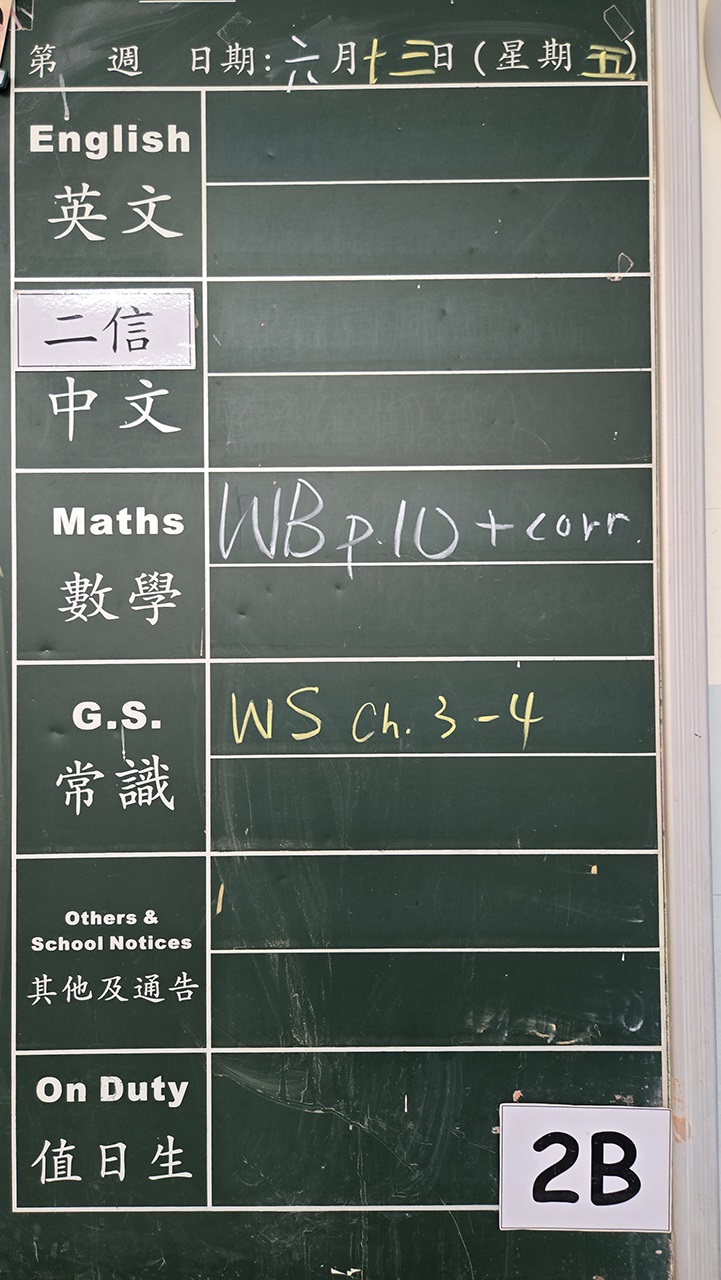 第 週 日期:六月十三日(星期五)
English
英文
二信
中文
Maths
數學
WB p.10 + corr.
G.S.
常識
WS Ch. 3-4
Others &
School Notices
其他及通告
On Duty
值日生
2B